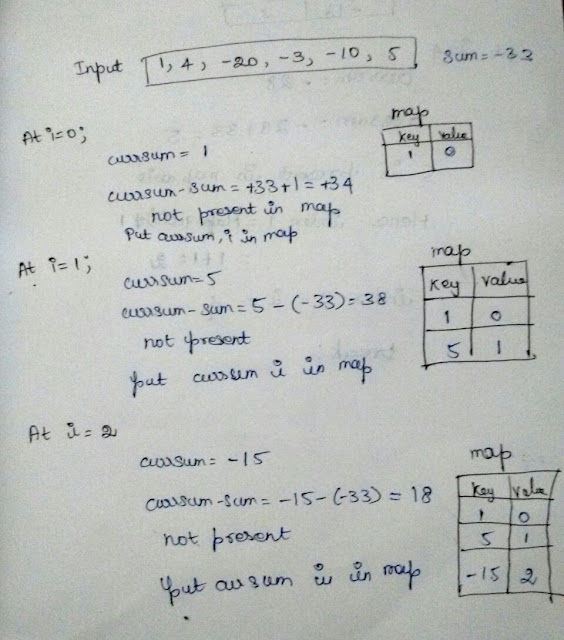 Input 1, 4, -20, -3, -10, 5 sum = -33
At i=0;
map
key value
1 0
currsum = 1
currsum - sum = +33+1 = +34
not present in map
Put currsum, i in map
At i=1;
map
key value
1 0
5 1
currsum=5
currsum - sum = 5 - (-33) = 38
not present
put currsum i in map
At i = 2
map
key value
1 0
5 1
-15 2
currsum = -15
currsum-sum = -15-(-33) = 18
not present
put currsum i in map